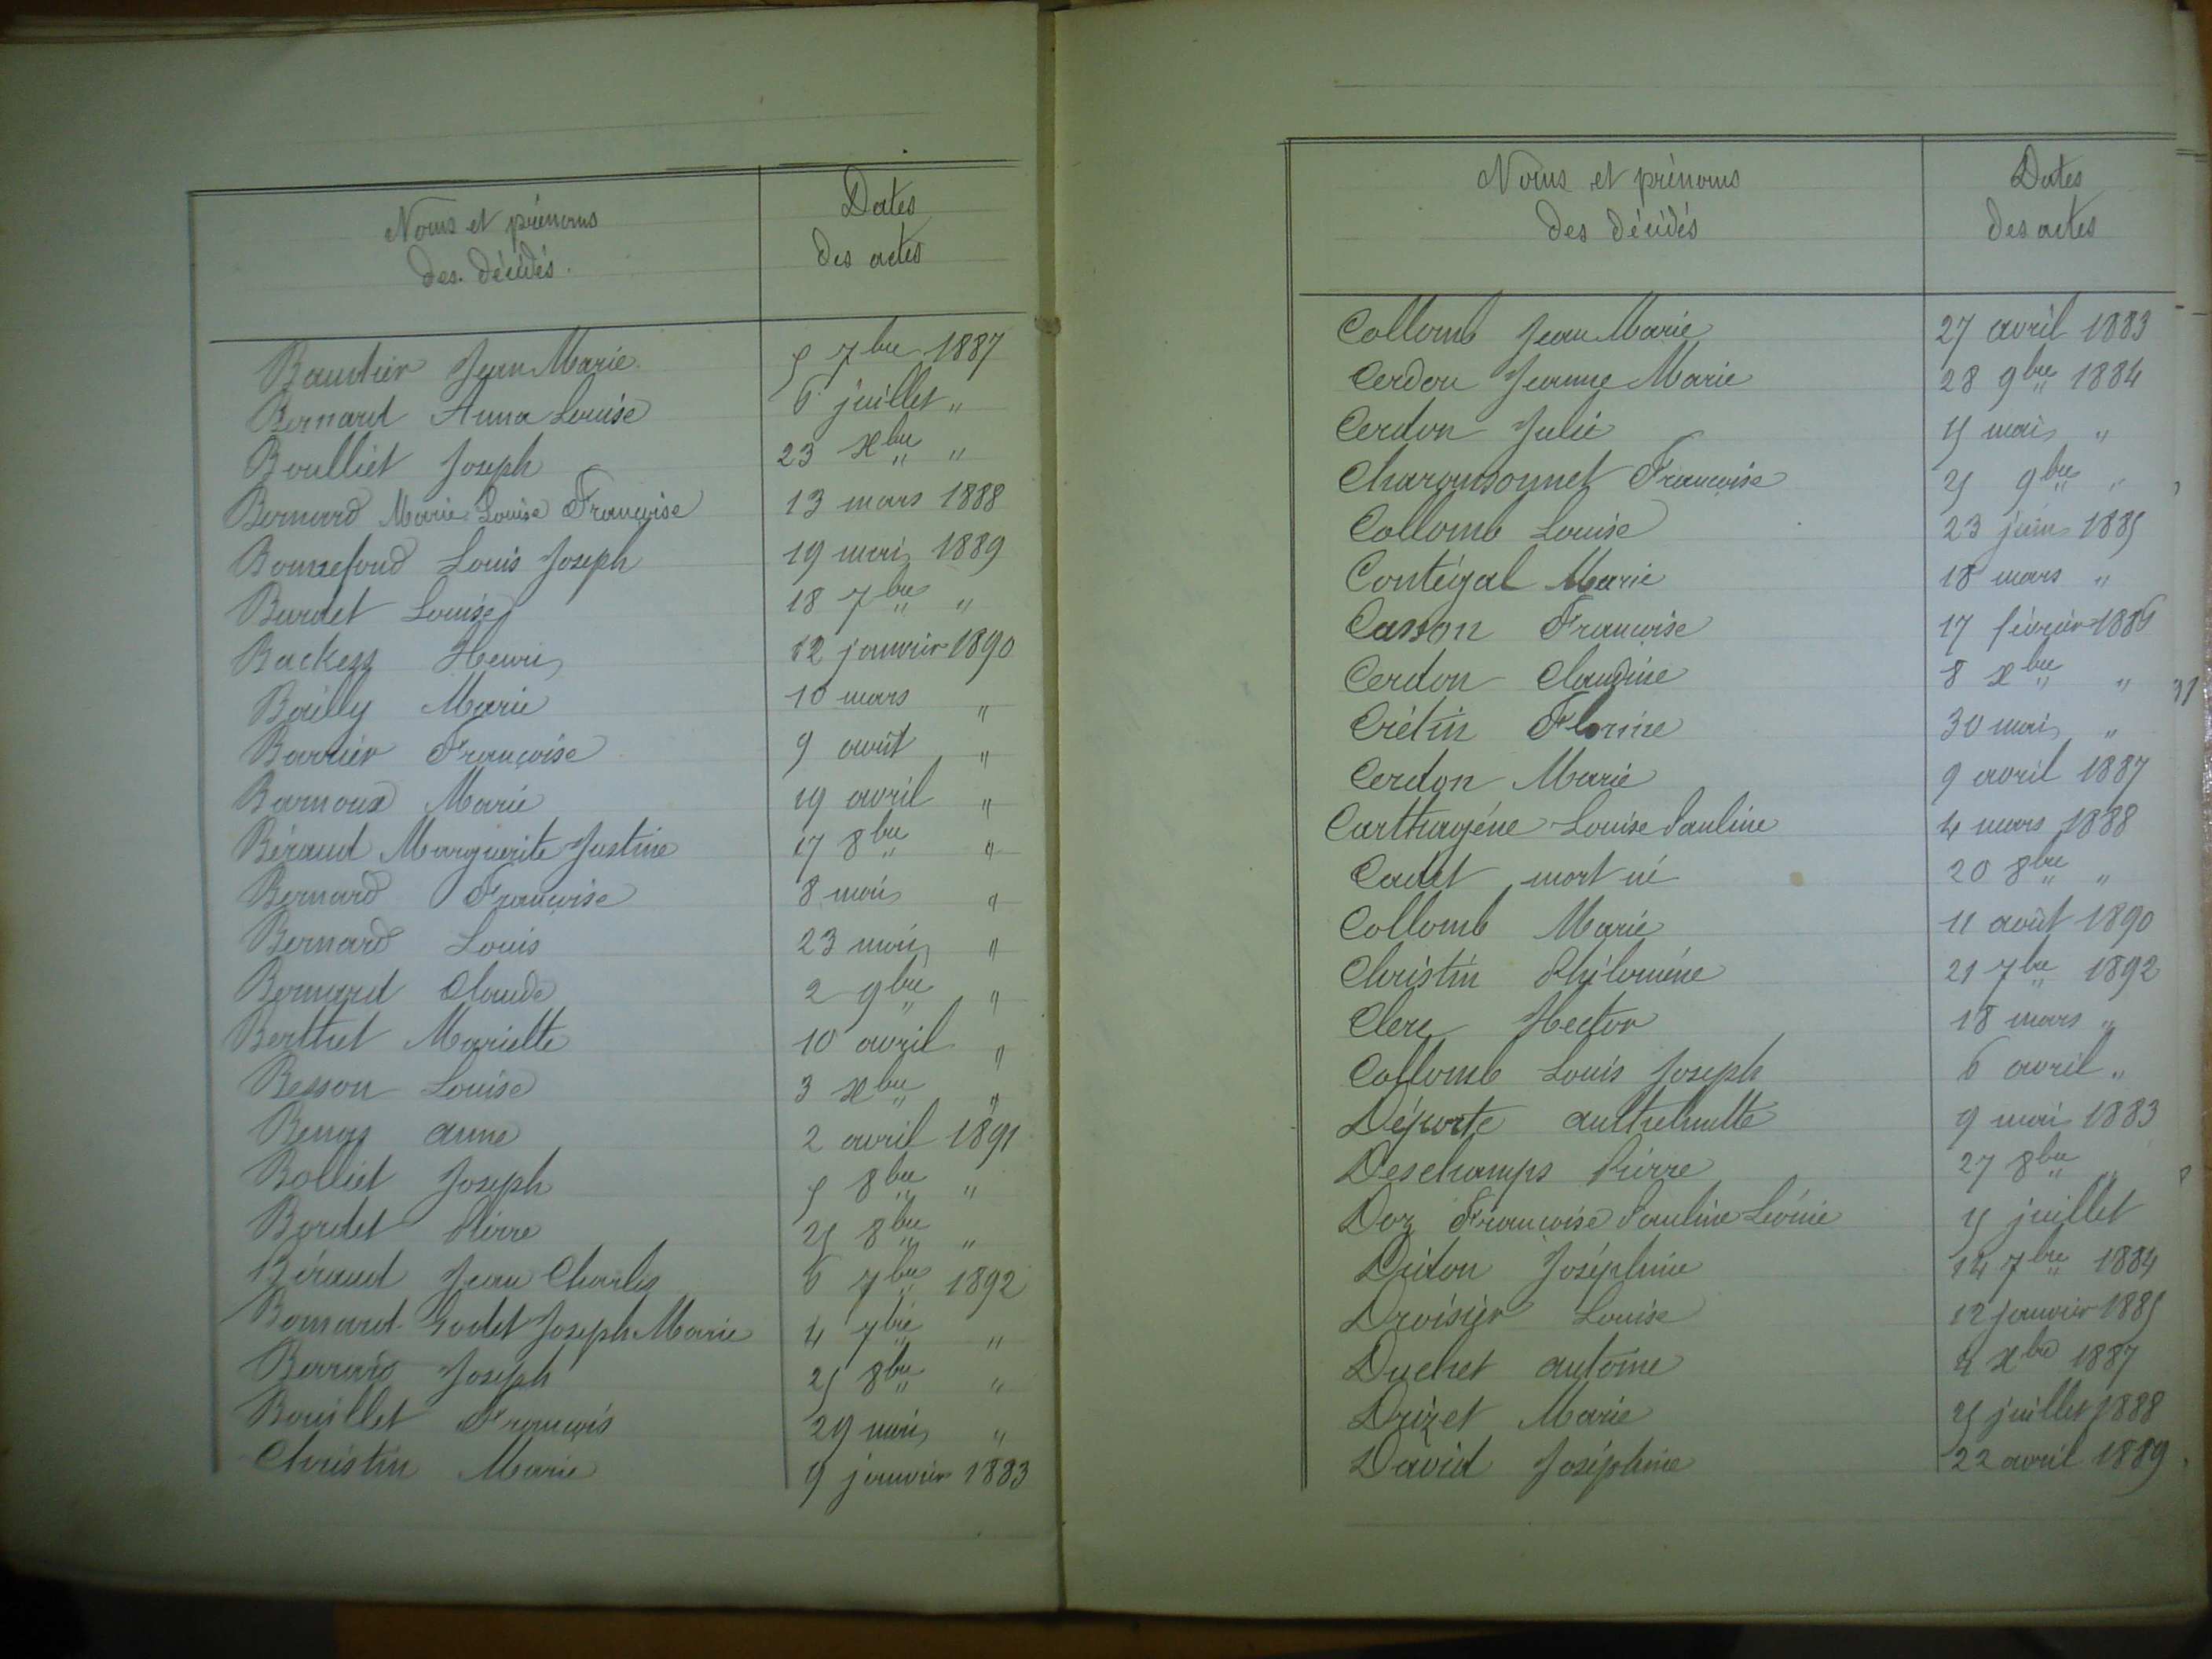 Noms et prénoms
des décédés.
Dates
des actes
Baudier Jean Marie 5 7bre 1887
Bernard Anna Louise 6 juillet "
Boulliet Joseph 23 xbre "
Bernard Marie Louise Françoise 13 mars 1888
Bonnefond Louis Joseph 19 mai 1889
Burdet Louise 18 7bre "
Backezz Henri 12 janvier 1890
Bailly Marie 10 mars "
Barrier Françoise 9 août "
Barnoux Marie 19 avril "
Béraud Marguerite Justine 17 8bre "
Bernard Françoise 8 mai "
Bernard Louis 23 mai "
Bernard Claude 2 9bre "
Berthet Mariette 10 avril "
Besson Louise 3 xbre "
anne 2 avril 1891
Bolliet Joseph 5 8bre "
Bordet Pierre 25 8bre "
Béraud Jean Charles 6 7bre 1892
Godet Joseph Marie 4 7bre "
Joseph 25 8bre "
Bouillet François 29 mai "
Christin Marie 9 janvier 1883
Noms et prénoms
des décédés
Dates
des actes
Collomb Jean Marie 27 avril 1883
Cerdon Jeanne Marie 28 9bre 1884
Cerdon Julie 15 mai "
Charonsonnet Françoise 25 9bre "
Collomb Louise 23 juin 1885
Contégal Marie 18 mars "
Casson Françoise 17 février 1886
Cerdon Claudine 8 xbre "
Crétin Florine 30 mai "
Cerdon Marie 9 avril 1887
Carthagéne Louise Pauline 4 mars 1888
Cadet mort né 20 8bre "
Collomb Marie 11 août 1890
Christin Philoméne 21 7bre 1892
Clerc Hector 18 mars "
Collomb Louis Joseph 6 avril "
Déporte 9 mai 1883
Deschamps Pierre 27 8bre "
Doz Françoise Pauline Léonie 15 juillet
Didon Joséphine 14 7bre 1884
Droisier Louise 12 janvier 1885
Duchet antoine 4 xbre 1887
Drizet Marie 25 juillet 1888
David Joséphine 22 avril 1889